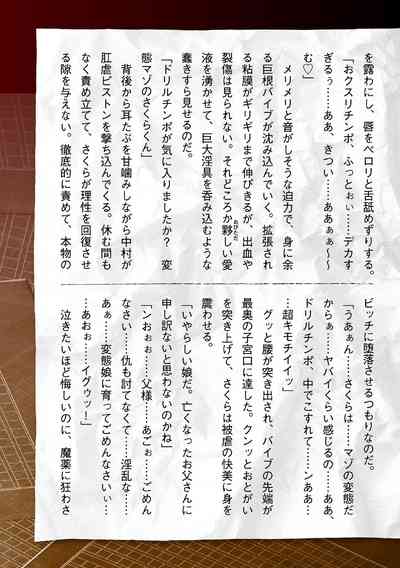 を露わにし、唇をペロリと舌舐めずりする。
「おクスリチンポ、ふっとぉぃ……デカす
ぎるぅ……ああ、きつい……ああぁぁ〜〜
む♡」
メリメリと音がしそうな迫力で、身に余
る巨根バイブが沈み込んでいく。拡張され
る粘膜がギリギリまで伸びきるが、出血や
裂傷は見られない。それどころか夥しい愛
液を湧かせて、巨大淫具を呑み込むような
蠢きすら見せるのだ。
「ドリルチンポが気に入りましたか？　変
態マゾのさくらくん」
背後から耳たぶを甘噛みしながら中村が
肛虐ピストンを撃ち込んでくる。休む間も
なく責め立てて、さくらが理性を回復させ
る隙を与えない。徹底的に責めて、本物の
ビッチに堕落させるつもりなのだ。
「うあぁん……さくらは……マゾの変態だ
からぁ……ヤバイくらい感じるの……ああ、
ドリルチンポ、中でこすれて……ンああ…
…超キモチイイッ」
グッと腰が突き出され、バイブの先端が
最奥の子宮口に達した。クンッとおとがい
を突き上げて、さくらは被虐の快美に身を
震わせる。
「いやらしい娘だ。亡くなったお父さんに
申し訳ないと思わないのかね」
「ンおぉぉ……父様……あごぉ……ごめん
なさい……仇も討てなくて……淫乱な……
あぁ……変態娘に育ってごめんなさいぃ…
…あおぉ……イグウッ！」
泣きたいほど悔しいのに、魔薬に狂わさ